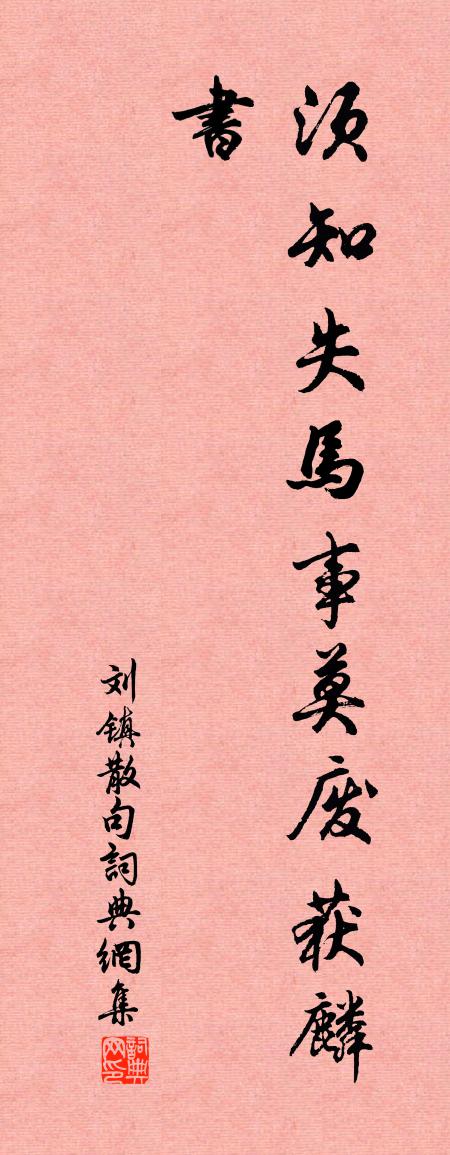 须知失馬事莫废获麟
書
刘镇散句詞典網集
詞典网印